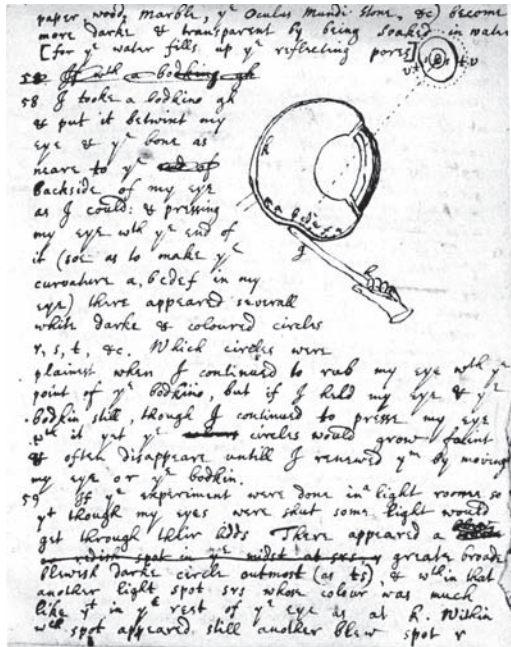 paper, wood, marble, yᵉ Oculus Mundi stone, &c) become
more darke & transparent by being soaked in water
[for yᵉ water fills up yᵉ reflecting pores]
58 I tooke a bodkine gh
& put it betwixt my
eye & yᵉ bone as
neare to yᵉ
backside of my eye
as I could: & pressing
my eye wᵗʰ yᵉ end of
it (soe as to make yᵉ
curvature a, bcdef in my
eye) there appeared severall
white darke & coloured circles
r, s, t, &c. Which circles were
plainest when I continued to rub my eye wᵗʰ yᵉ
point of yᵉ bodkine, but if I held my eye & yᵉ
bodkin still, though I continued to presse my eye
wᵗʰ it yet yᵉ circles would grow faint
& often disappeare untill I renewed yᵐ by moving
my eye or yᵉ bodkin.
59 If yᵉ experiment were done in a light roome so
yᵗ though my eyes were shut some light would
get through their lidds There appeared a
greate broade
blewish darke circle outmost (as ts), & wᵗʰin that
another light spot srs whose colour was much
like yᵗ in yᵉ rest of yᵉ eye as at k. Within
wᶜʰ spot appeared still another blew spot r